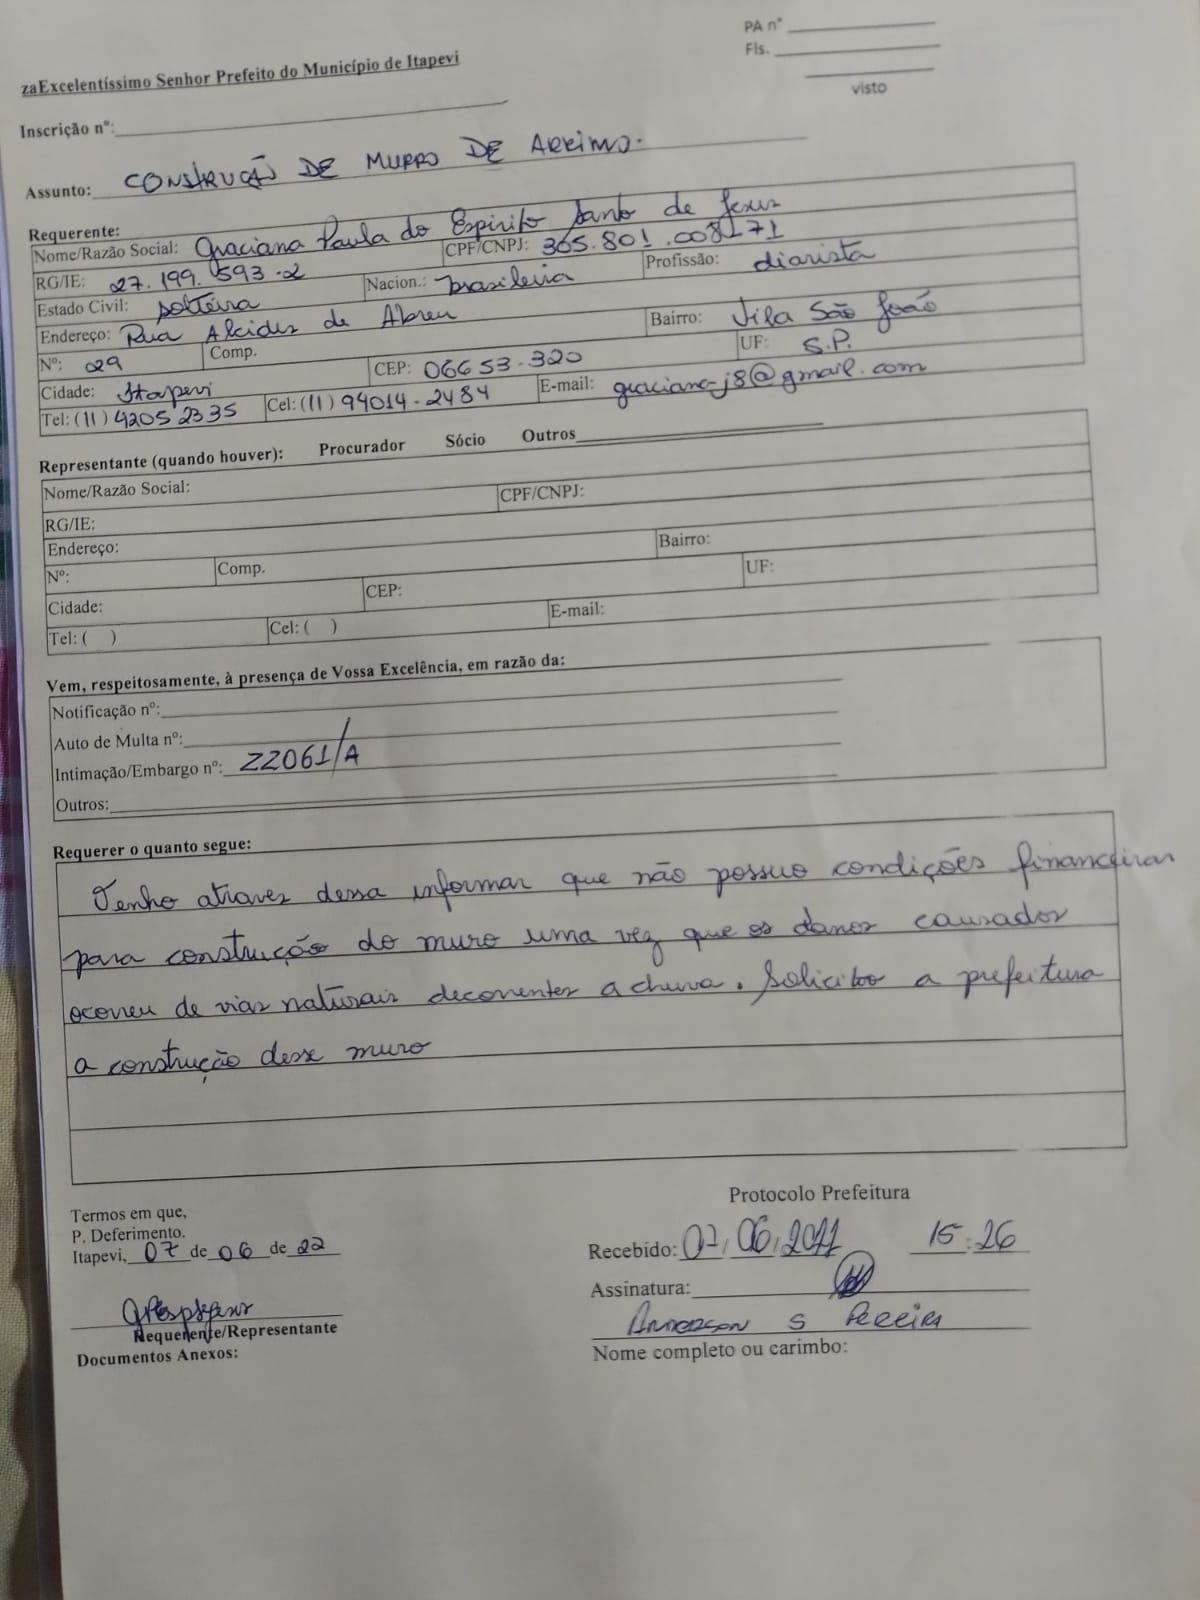 PA nº
Fls.
visto
zaExcelentíssimo Senhor Prefeito do Município de Itapevi
Inscrição nº:
Assunto: CONSTRUÇÃO DE MURRO DE ARRIMO.
Requerente:
Nome/Razão Social: Graciana Paula do Espirito Santo de Jesus
RG/IE: 27.199.593-2 CPF/CNPJ: 365.801.008-71
Estado Civil: solteira Nacion.: brasileira Profissão: diarista
Endereço: Rua Alcides de Abreu Bairro: Vila São João
Nº: 029 Comp. CEP: 06653-320 UF: S.P.
Cidade: Itapevi
Tel: (11) 4205 2335 Cel: (11) 94014-2484 E-mail: graciana-j8@gmail.com
Representante (quando houver): Procurador Sócio Outros
Nome/Razão Social: CPF/CNPJ:
RG/IE:
Endereço: Bairro:
Nº: Comp. UF:
Cidade: CEP:
Tel: ( ) Cel: ( ) E-mail:
Vem, respeitosamente, à presença de Vossa Excelência, em razão da:
Notificação nº:
Auto de Multa nº:
Intimação/Embargo nº: 22061/A
Outros:
Requerer o quanto segue:
Venho atraves dessa informar que não possuo condições financeiras
para construção do muro uma vez que os danos causador
ocorreu de vias naturais decorrentes a chuva. Solicito a prefeitura
a construção desse muro
Termos em que,
P. Deferimento.
Itapevi, 07 de 06 de 22
Requerente/Representante
Documentos Anexos:
Protocolo Prefeitura
Recebido: 07/06/2022 15:26
Assinatura:
Anderson S Pereira
Nome completo ou carimbo: